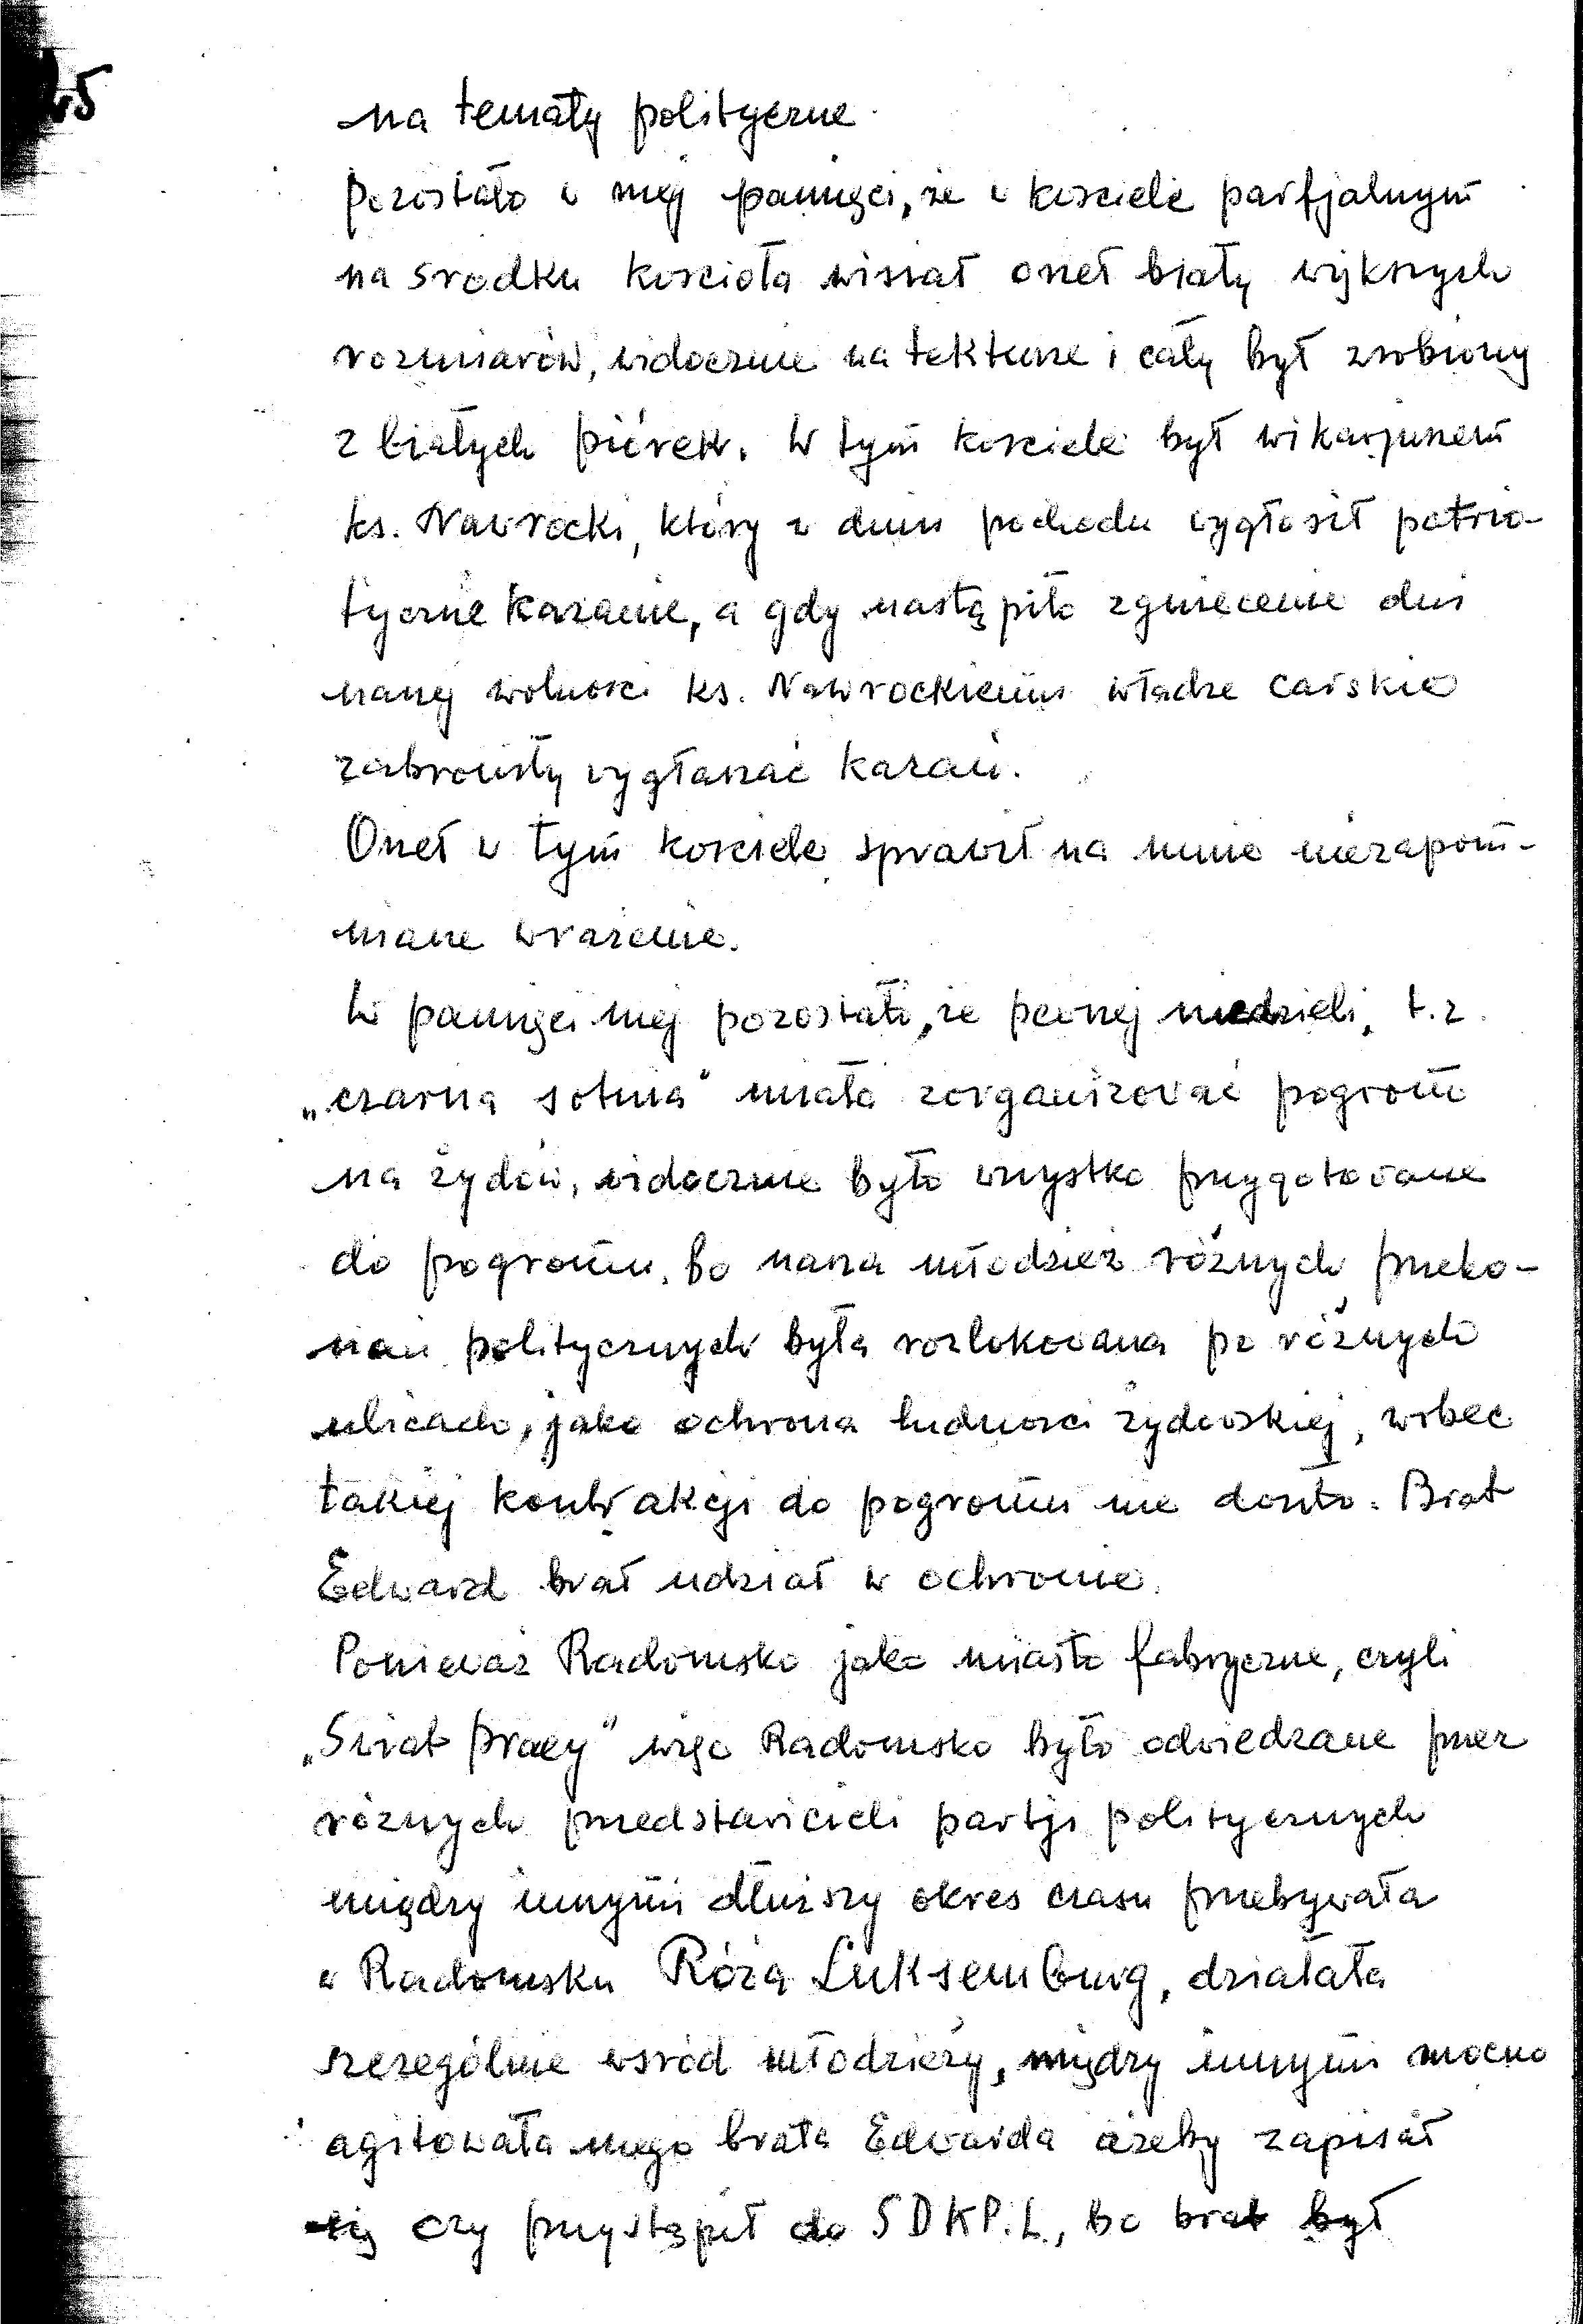 45
na tematy polityczne.
Pozostało w mej pamięci, że w kościele parfjalnym
na srodku kościoła wisiał orzeł biały większych
rozmiarów, widocznie na tekturze i cały był zrobiony
z białych piórek. W tym kosciele był wikarjuszem
ks. Nawrocki, który w dniu pochodu wygłosił patrio-
tyczne kazanie, a gdy nastąpiło zgniecenie dni
naszej wolnosci ks. Nawrockiemu władze carskie
zabroniły wygłaszać kazań.
Orzeł w tym kosciele sprawił na mnie niezapom-
niane wrażenie.
W pamięci mej pozostało, że pewnej niedzieli, t.z.
„czarna sotnia" miała zorganizować pogrom
na żydów, widocznie było wszystko przygotowane
do pogromu, bo nasza młodzież różnych przeko-
nań politycznych była rozlokowana po różnych
ulicach, jako ochrona ludnosci żydowskiej, wobec
takiej kontrakcji do pogromu nie doszło. Brat
Edward brał udział w ochronie.
Ponieważ Radomsko jako miasto fabryczne, czyli
„Swiat pracy" więc Radomsko było odwiedzane przez
różnych przedstawicieli partji politycznych
między innymi dłuższy okres czasu przebywała
w Radomsku Róża Luksemburg, działała
szczególnie wsród młodzieży, między innymi mocno
agitowała mego brata Edwarda ażeby zapisał
się czy przystąpił do SDKP.L, bo brat był